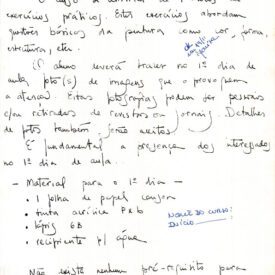 exercícios práticos. Estes exercícios abordam
questões básicas da pintura como cor, forma,
estrutura, etc.
O aluno deverá trazer no 1º dia de
aula foto(s) de imagens que o provoquem
a atenção. Estas fotografias podem ser pessoais
e/ou retiradas de revistas ou jornais. Detalhes
de fotos também serão aceitos.
É fundamental a presença dos interessados
no 1º dia de aula...
- Material para o 1º dia -
• 1 folha de papel canson
• tinta acrílica P&b
• lápis 6B
• recipiente p/ água
NOME DO CURSO:
INÍCIO
Não existe nenhum pré-requisito para